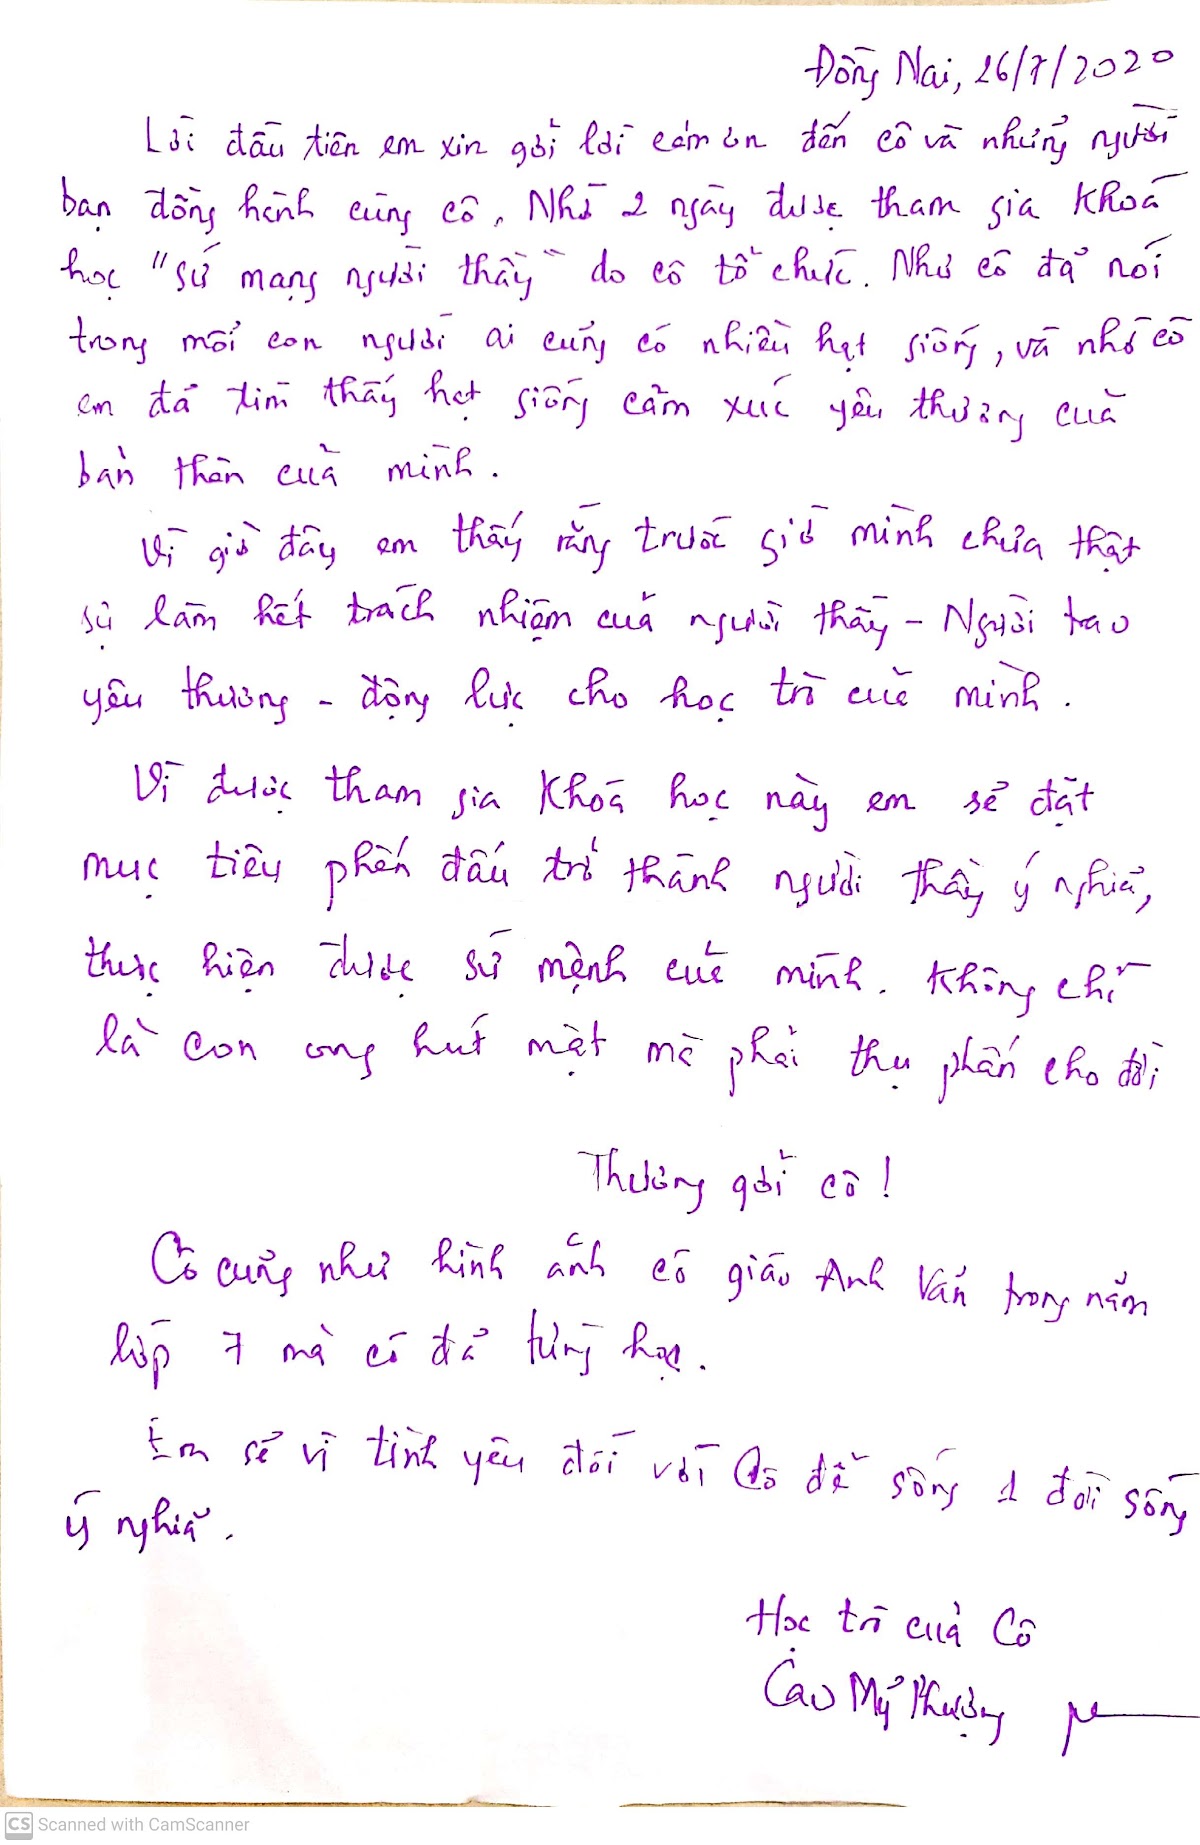 Đồng Nai, 26/7/2020
Lời đầu tiên em xin gởi lời cám ơn đến cô và những người
bạn đồng hành cùng cô. Nhờ 2 ngày được tham gia khoá
học "sứ mạng người thầy" do cô tổ chức. Như cô đã nói
trong mỗi con người ai cũng có nhiều hạt giống, và nhờ cô
em đã tìm thấy hạt giống cảm xúc yêu thương của
bản thân của mình.
Vì giờ đây em thấy rằng trước giờ mình chưa thật
sự làm hết trách nhiệm của người thầy - Người trao
yêu thương - động lực cho học trò của mình.
Vì được tham gia khoá học này em sẽ đặt
mục tiêu phấn đấu trở thành người thầy ý nghĩa,
thực hiện được sứ mệnh của mình. Không chỉ
là con ong hút mật mà phải thụ phấn cho đời
Thương gởi cô!
Cô cũng như hình ảnh cô giáo Anh Văn trong năm
lớp 7 mà cô đã từng học.
Em sẽ vì tình yêu đối với Cô để sống 1 đời sống
ý nghĩa.
Học trò của Cô
Cao Mỹ Phượng
CS Scanned with CamScanner